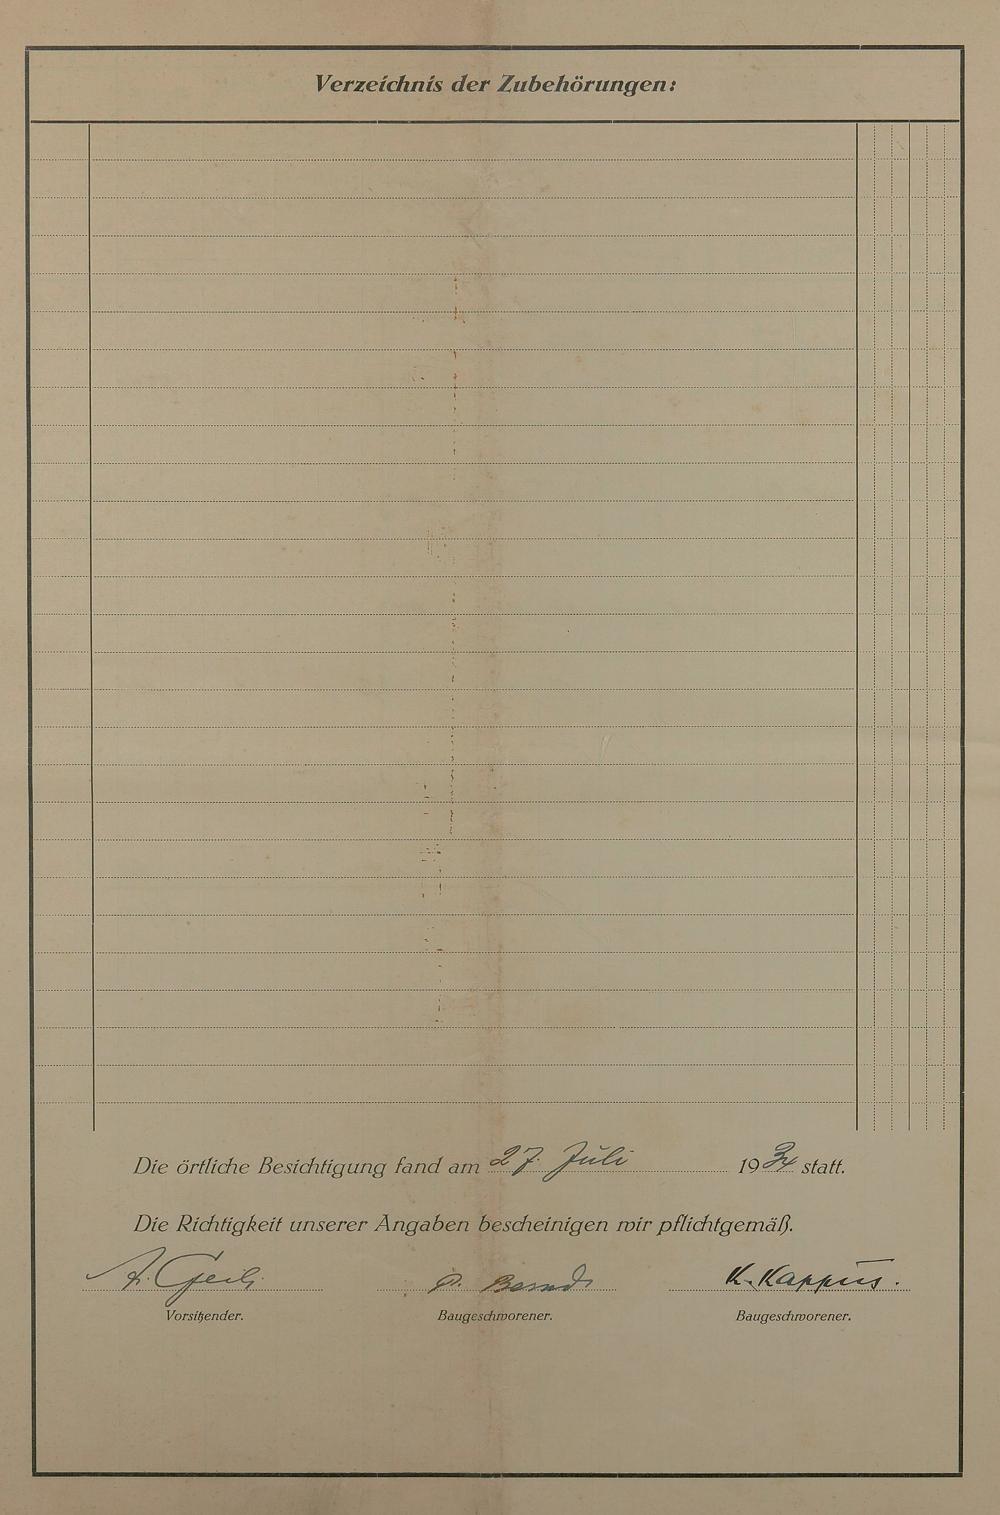 Verzeichnis der Zubehörungen:
Die örtliche Besichtigung fand am 27. Juli 1934 statt.
Die Richtigkeit unserer Angaben bescheinigen wir pflichtgemäß.
A. K. Kappus.
Vorsitzender. Baugeschworener. Baugeschworener.